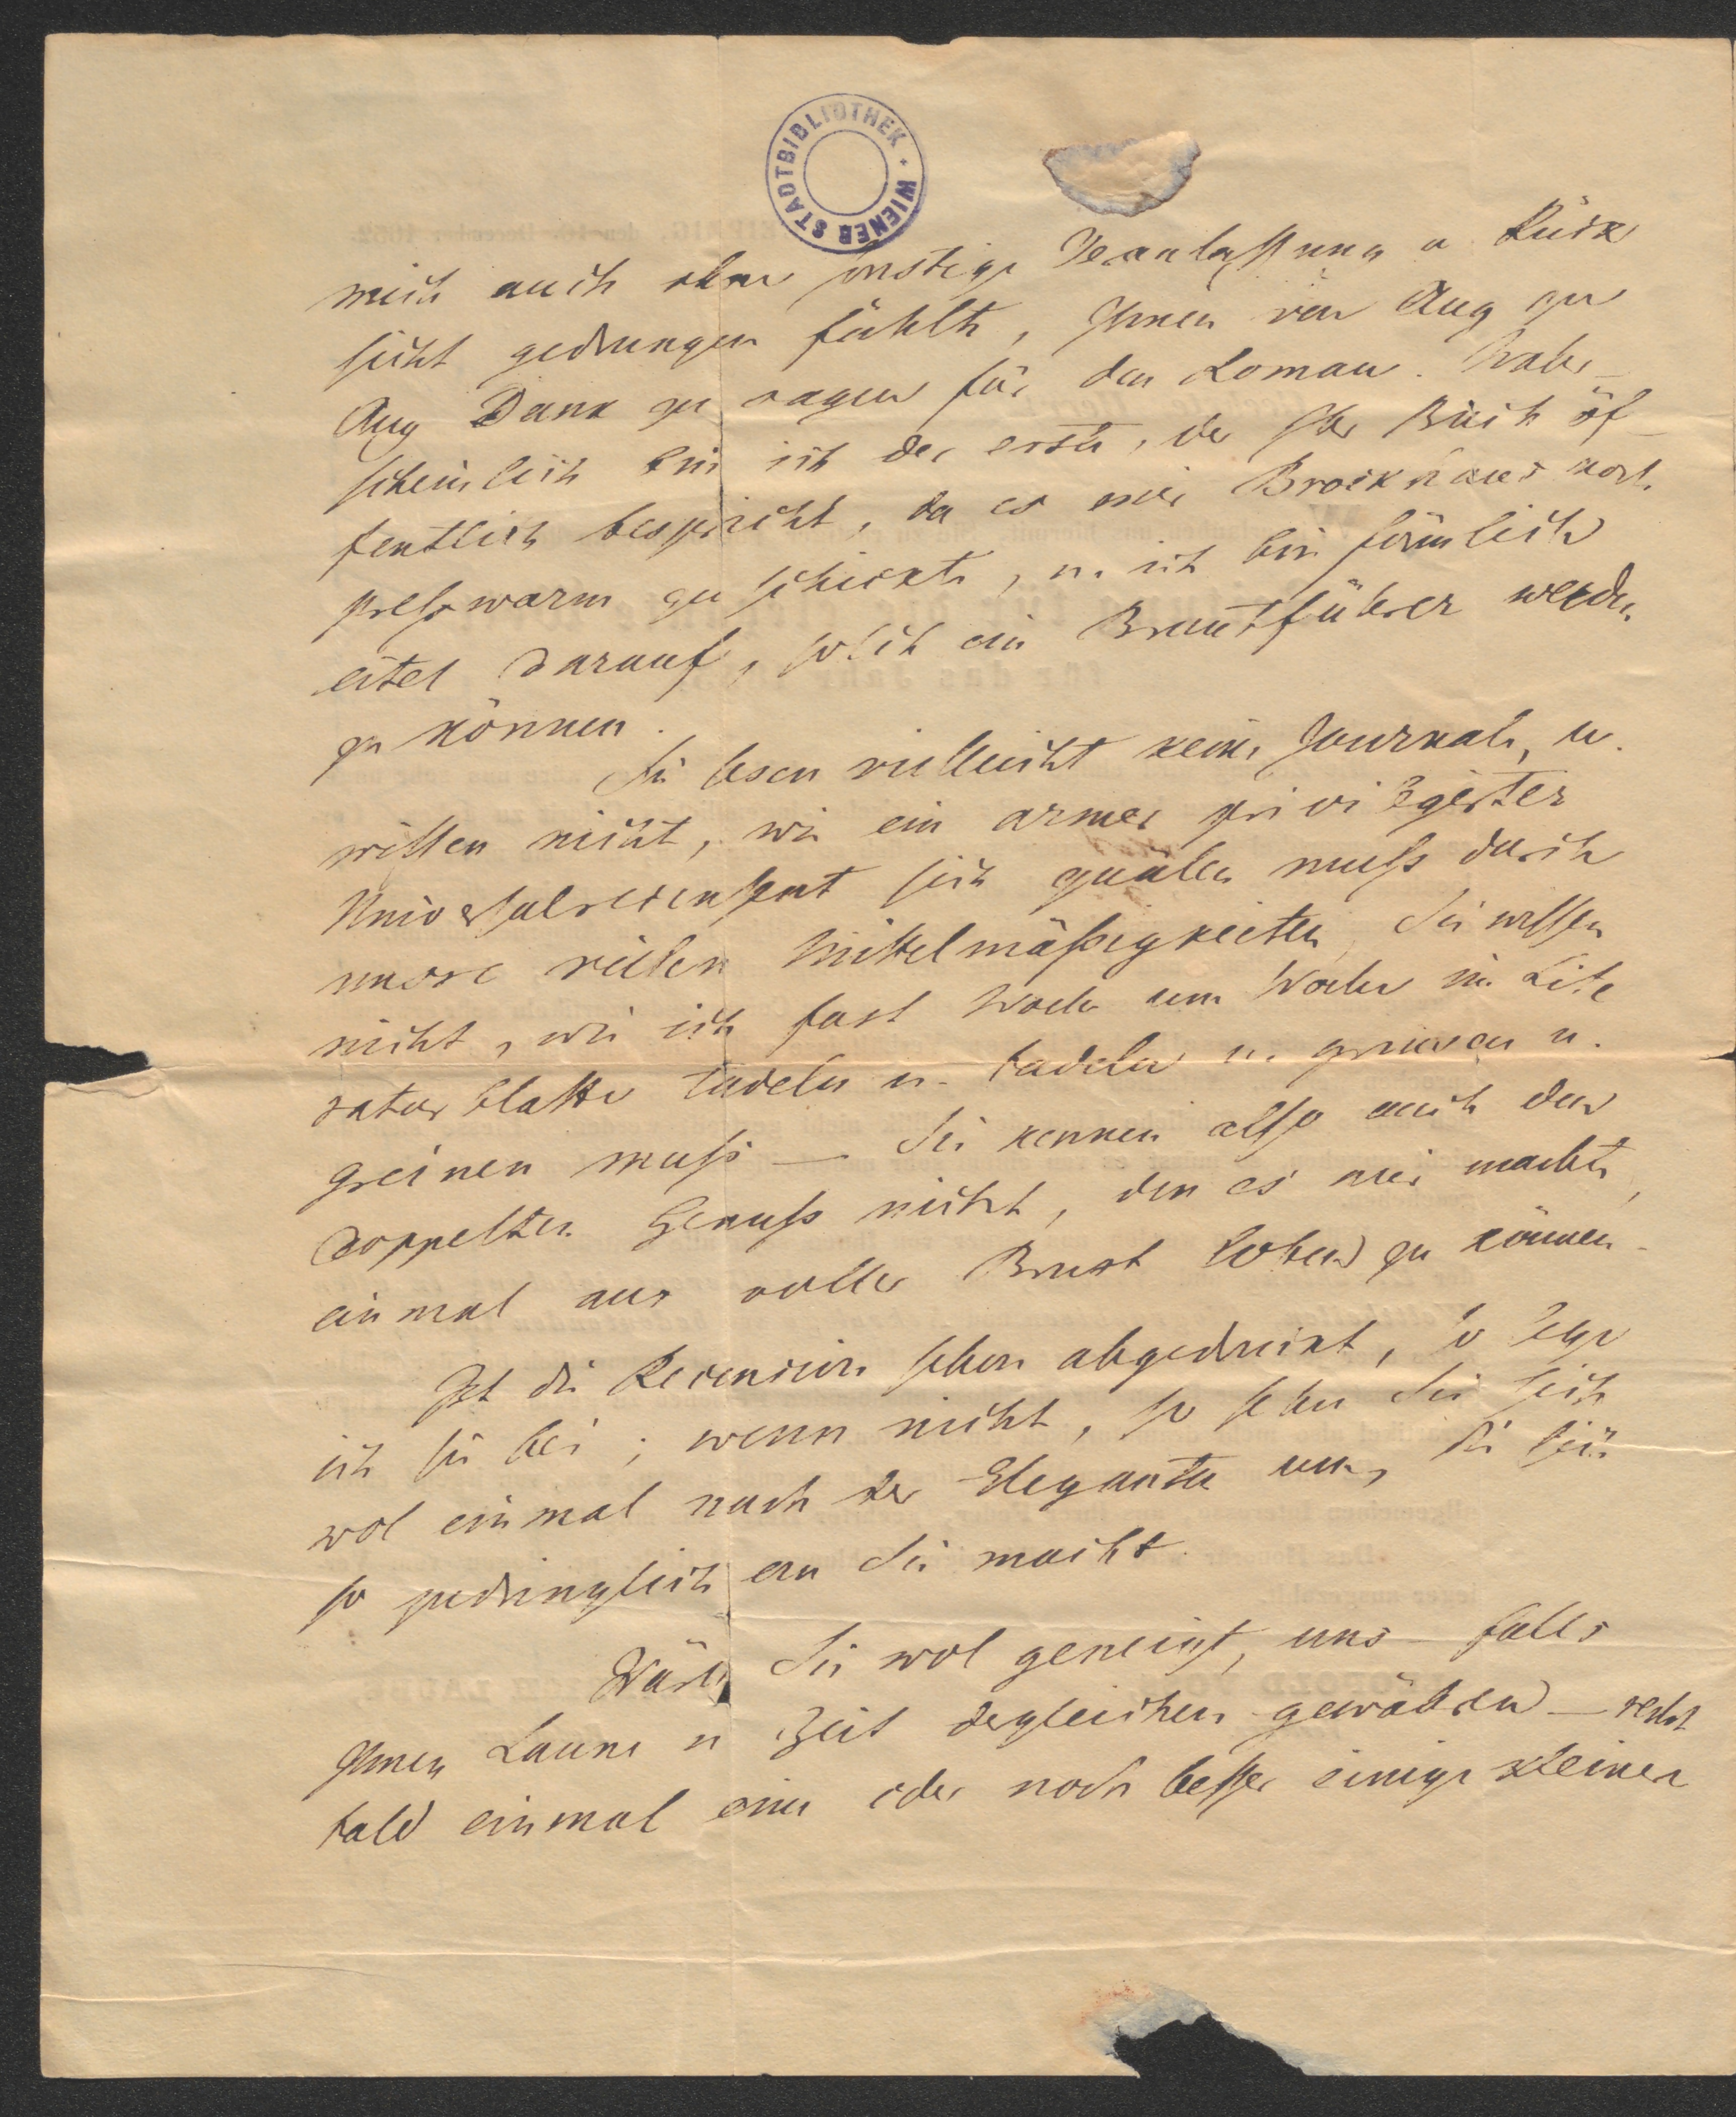 WIENER STADTBIBLIOTHEK
mich auch ohne sonstige Veranlassung u Rück
sicht gedrungen fühlte, Ihnen von Aug zu
Aug Dank zu sagen für den Roman. Wahr-
scheinlich bin ich der erste, der Ihr Buch öf-
fentlich bespricht, da es mir Brockhaus noch
preßwarm zu schickte, u. ich bin förmlich
eitel darauf, solch ein Brautführer werden
zu können.
Sie lesen vielleicht keine Journale, u.
wissen nicht, wie ein armer privilegirter
Universalrecensent sich quälen muß durch
unsre vielen Mittelmäßigkeiten, Sie wissen
nicht, wie ich fast Woche um Woche im Lite
raturblatte tadeln u. tadeln u. grinsen u.
greinen muß — Sie kennen also auch den
doppelten Genuß nicht, den es mir machte,
einmal aus voller Brust loben zu können.
Ist die Recension schon abgedruckt, so lege
ich sie bei; wenn nicht, so sehen Sie sich
wol einmal nach der Eleganten um, die sich
so zudringlich an Sie macht.
Wären Sie wol geneigt, uns — falls
Ihnen Laune u Zeit dergleichen gewähren — recht
bald einmal eine oder noch besser einige kleinere